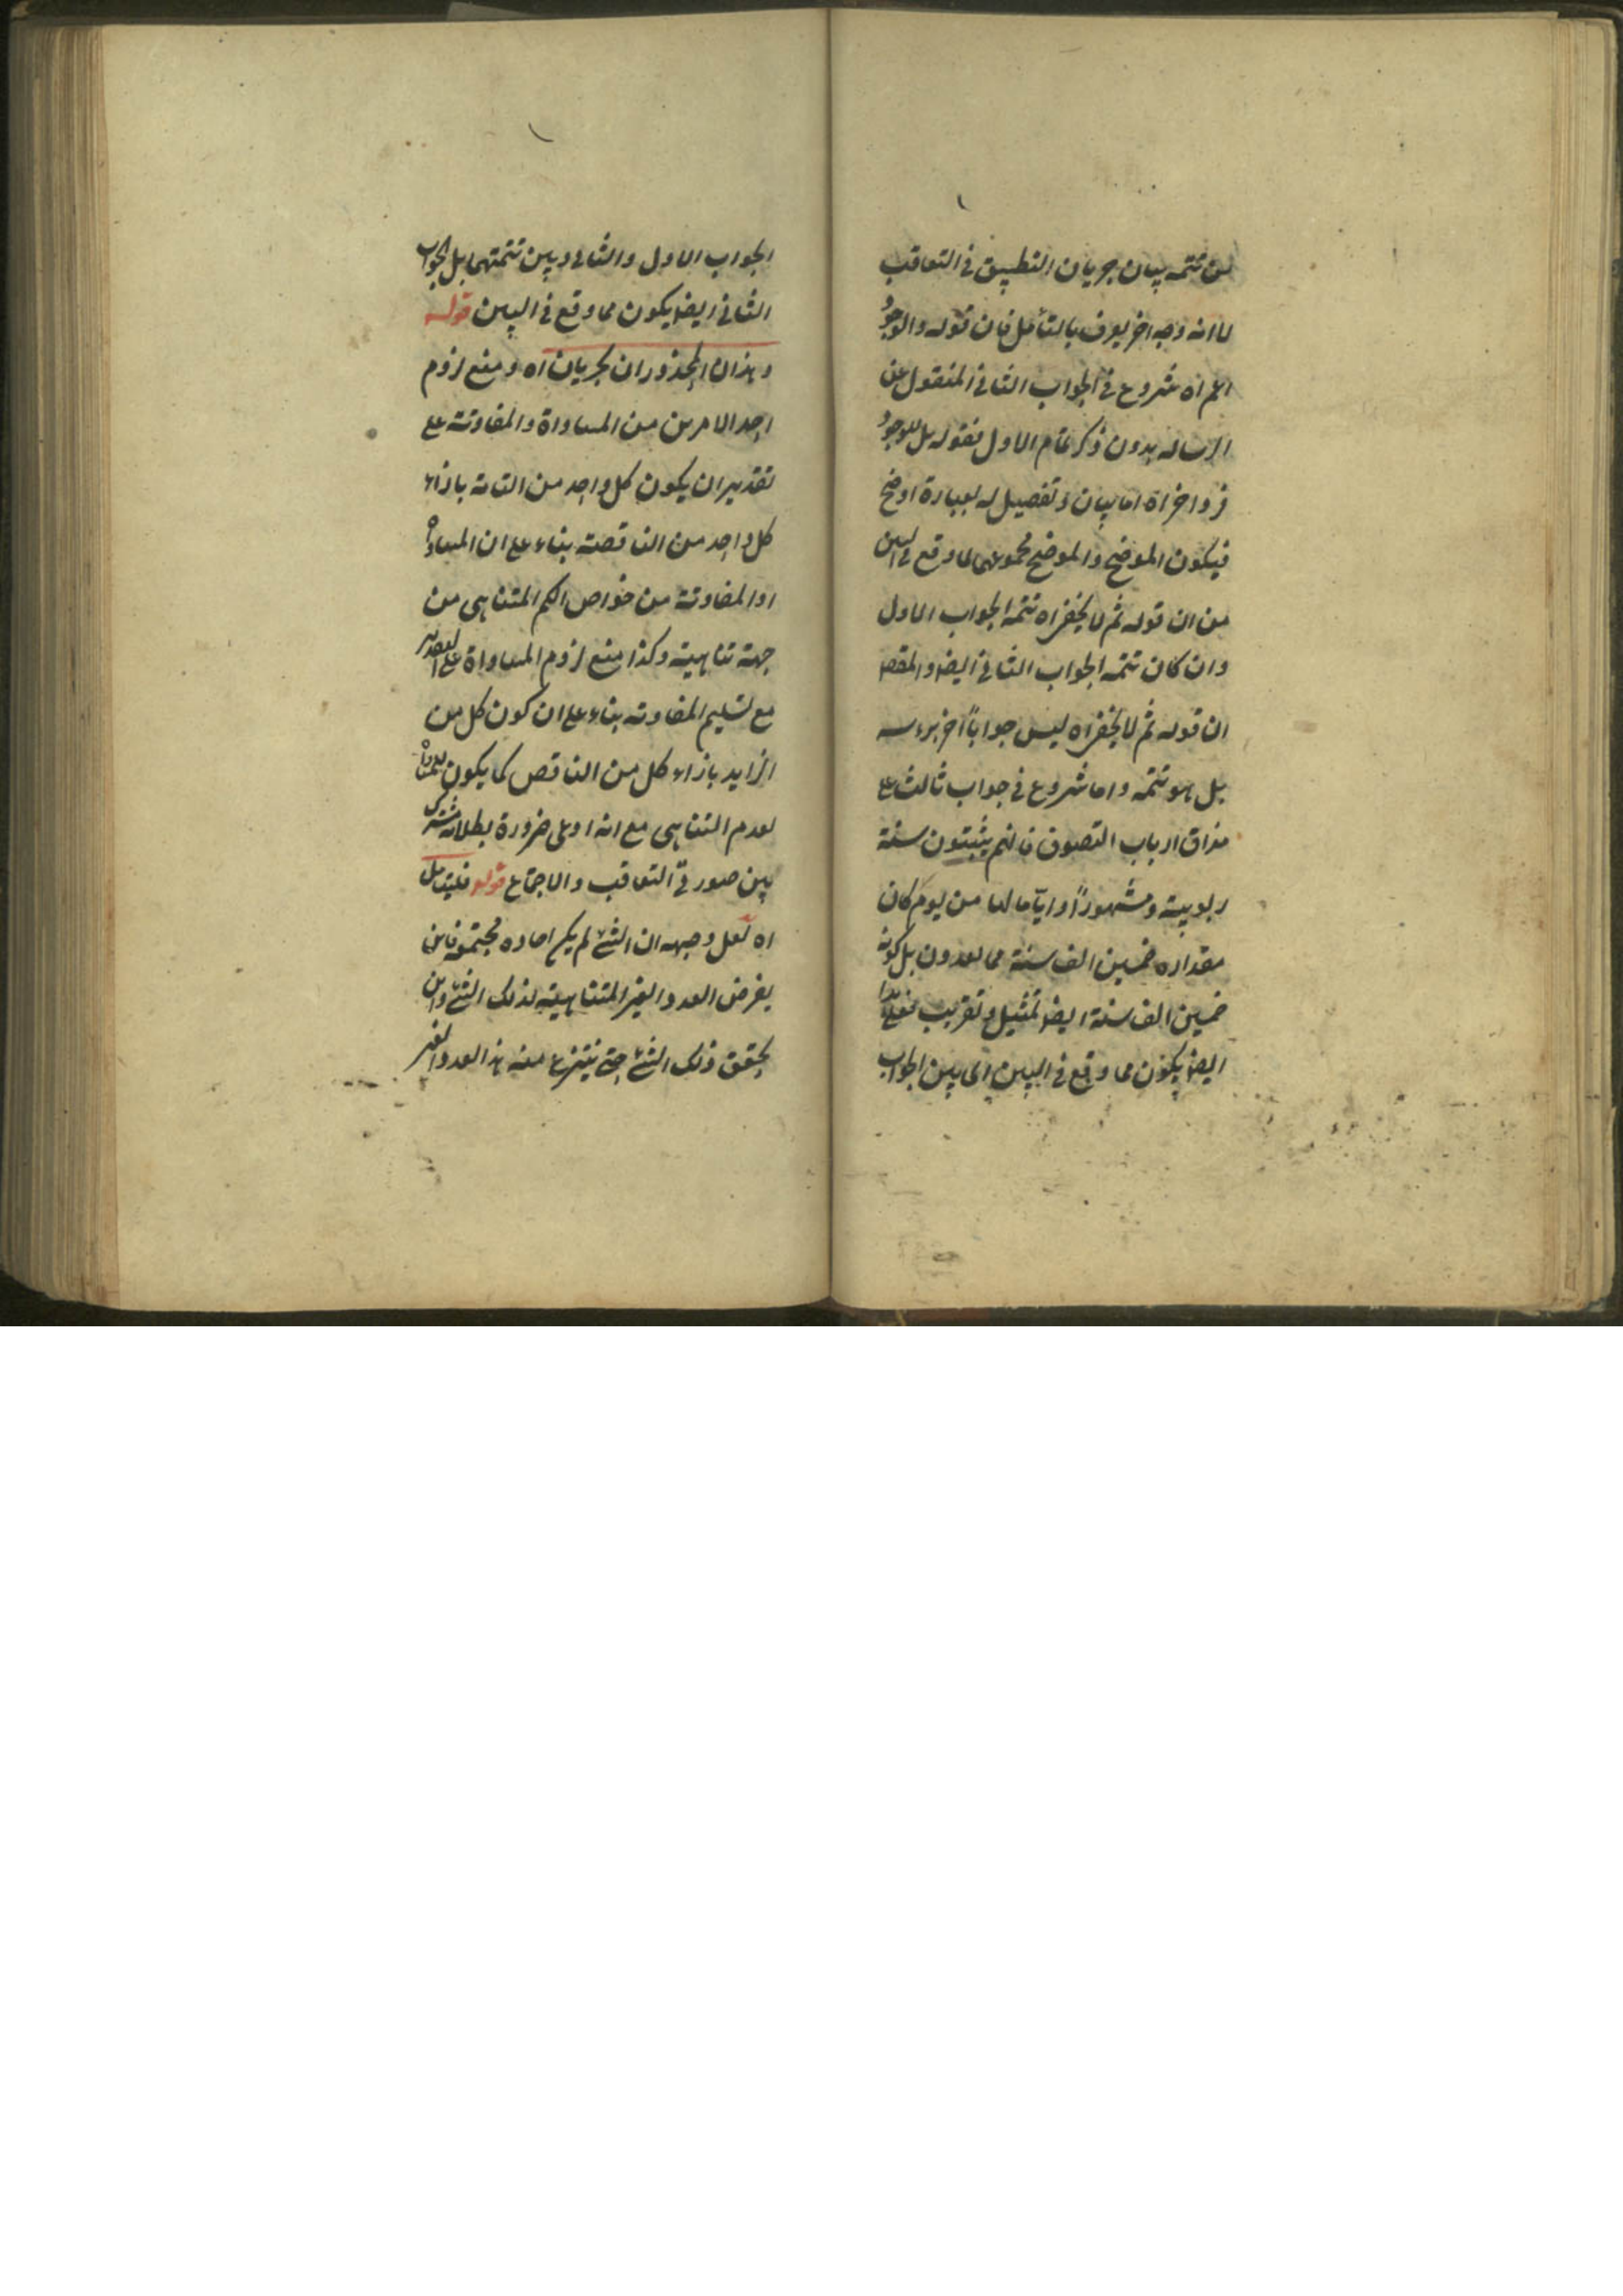 من تتمه بيان جريان التطبيق في التعاقب
لا انه وجه اخر يعرف بالتأمل فان قوله والوجود
اعم اه شروع في الجواب الثاني المنقول عن
الرساله بدون ذكر تمام الاول فقوله بل للوجود
فرد اخر اه اما بيان وتفصيل له بعبارة اوضح
فيكون الموضح والموضح مجموعهما لما وقع في البين
من ان قوله ثم لا يخفى اه تتمه الجواب الاول
وان كان تتمه الجواب الثاني ايضا والمقصد
ان قوله ثم لا يخفى اه ليس جوابا اخر براسه
بل هو تتمه واما شروع في جواب ثالث على
مذاق ارباب التصوف فانهم يثبتون سنة
ربوبية ومشهورا واياما لها من يوم كان
مقداره خمسين الف سنة مما تعدون بل كونه
خمسين الف سنة ايضا تمثيل وتقريب فعلى هذا
ايضا يكون مما وقع في البين اى بين الجواب
الجواب الاول والثاني وبين تتمتهما بل الجواب
الثاني ايضا يكون مما وقع في البين قوله
وهذان المحذوران يجريان اه ومنع لزوم
احد الامرين من المساواة والمفاوتة على
تقدير ان يكون كل واحد من التامة بازاء
كل واحد من الناقصة بناء على ان المساواة
او المفاوتة من خواص الكم المتناهى من
جهة تناهيته وكذا منع لزوم المساواة على التقدير
مع تسليم المفاوته بناء على ان كون كل من
الزايد بازاء كل من الناقص كما يكون للمساواة
لعدم التناهى مع انه ادعى ضرورة بطلانه مشترك
بين صورتى التعاقب والاجتماع قوله فليتامل
اه لعل وجهه ان الشئ لم يكن احاده مجتمعة فاين
يعرض العدد الغير المتناهية لذلك الشئ واين
يحقق ذلك الشئ حتى ينتزع منه هذا العدد الغير